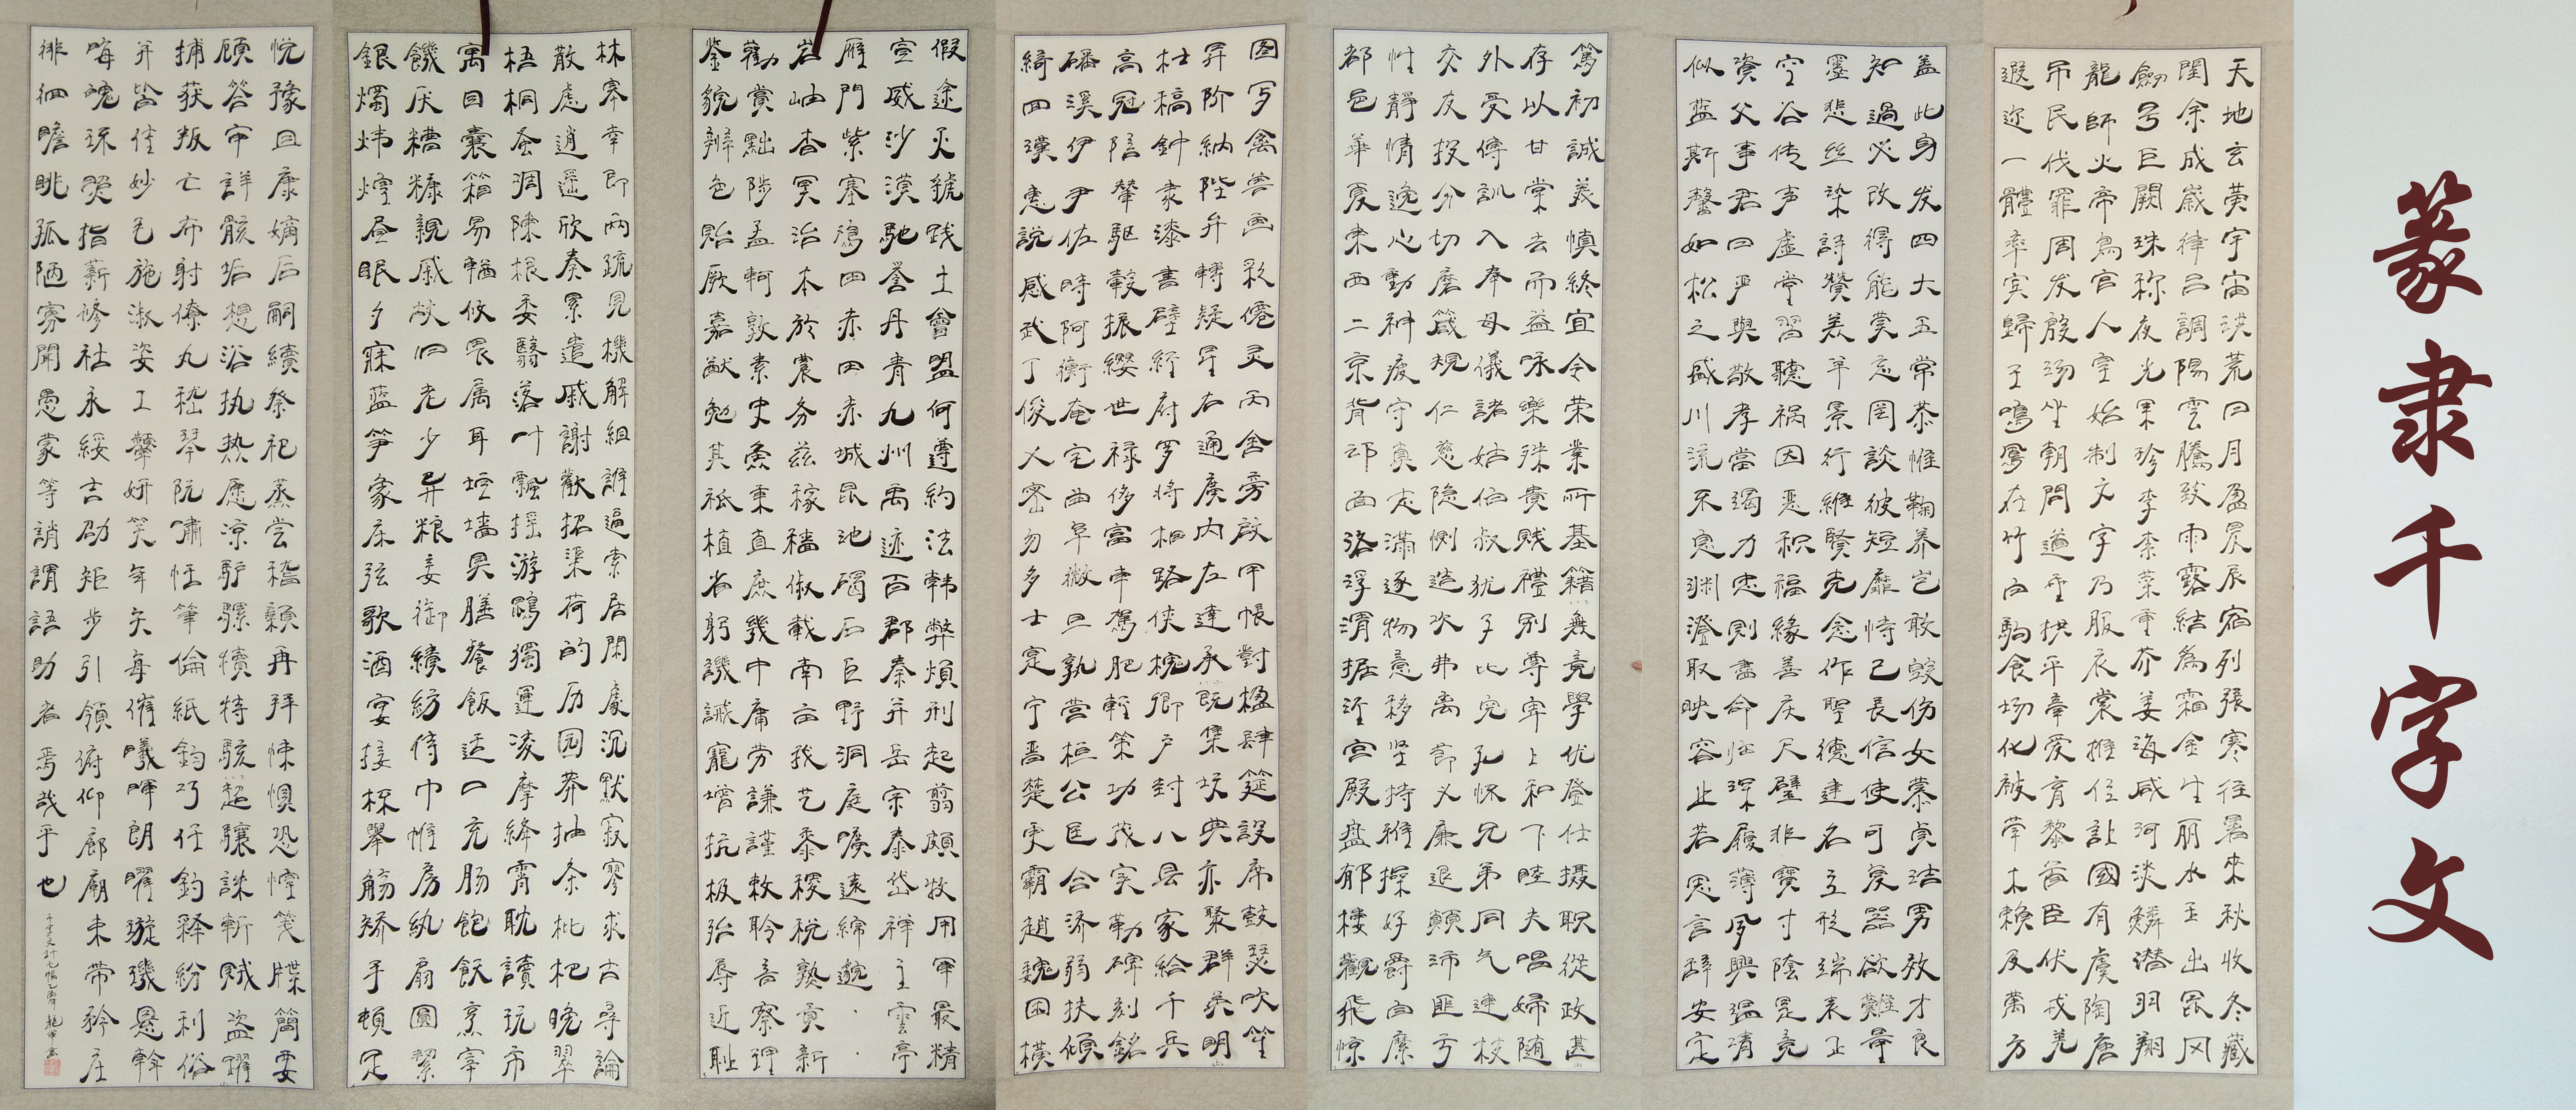 篆隶千字文
天地玄黄宇宙洪荒日月盈昃辰宿列張寒往暑來秋收冬藏
閏余成歲律吕調陽雲騰致雨露結為霜金生丽水玉出昆冈
劍号巨闕珠称夜光果珍李柰菜重芥姜海咸河淡鱗潜羽翔
龍師火帝鳥官人皇始制文字乃服衣裳推位讓國有虞陶唐
吊民伐罪周发殷汤坐朝問道垂拱平章爱育黎首臣伏戎羌
遐迩一體率宾歸王鳴鳳在竹白駒食场化被草木赖及萬方
盖此身发四大五常恭惟鞠养岂敢毁伤女慕贞洁男效才良
知過必改得能莫忘罔談彼短靡恃己長信使可复器欲難量
墨悲丝染詩赞羔羊景行維賢克念作聖德建名立形端表正
空谷传声虚堂習聽祸因恶积福緣善庆尺璧非寶寸陰是竞
資父事君曰严與敬孝當竭力忠则盡命临深履薄夙興温凊
似蓝斯馨如松之盛川流不息渊澄取映容止若思言辞安定
篤初誠美慎終宜令荣業所基籍無竟學优登仕摄职從政甚
存以甘棠去而益咏樂殊貴贱禮别尊卑上和下睦夫唱婦随
外受傅訓入奉母儀諸姑伯叔犹子比兒孔怀兄弟同气連枝
交友投分切磨箴規仁慈隐惻造次弗离節义廉退顛沛匪亏
性靜情逸心動神疲守真志滿逐物意移坚持雅操好爵自縻
都邑華夏東西二京背邙面洛浮渭据泾宫殿盘郁樓觀飛惊
图写禽兽画彩僊灵丙舍旁啟甲帐對楹肆筵設席鼓瑟吹笙
昇阶納陛弁轉疑星右通廣内左達承既集坟典亦聚群英明
杜稿鍾隶漆書壁經府罗将相路侠槐卿户封八县家給千兵
高冠陪輦驱轂振缨世禄侈富車駕肥輕策功茂实勒碑刻銘
磻溪伊尹佐時阿衡奄宅曲阜微旦孰营桓公匡合济弱扶傾
綺回漢惠說感武丁俊乂密勿多士寔宁晋楚更霸趙魏困横
假途灭虢践土會盟何遵約法韩弊煩刑起翦頗牧用軍最精
宣威沙漠馳誉丹青九州禹迹百郡秦并岳宗泰岱禅主雲亭
雁門紫塞鴻四赤田赤城昆池碣石巨野洞庭曠遠綿邈
岩岫杳冥治本於農务兹稼穑俶載南亩我艺黍稷税熟贡新
勸賞黜陟孟軻敦素史魚秉直庶幾中庸劳謙謹敕聆音察理
鉴貌辨色贻厥嘉猷勉其祗植省躬譏誡寵增抗极殆辱近耻
林皋幸即两疏見機解組誰逼索居閑處沉默寂寥求古尋論
散慮逍遥欣奏累遣戚謝歡招渠荷的历园莽抽条枇杷晚翠
梧桐蚤凋陳根委翳落叶飄摇游鵾獨運凌摩絳霄耽讀玩市
寓目囊箱易輶攸畏属耳垣墙具膳餐飯适口充肠飽飫烹宰
饑厌糟糠親戚故旧老少异粮妾御績紡侍巾帷房纨扇圆潔
銀燭炜煌昼眠夕寐蓝笋象床弦歌酒宴接杯舉觞矫手頓足
悦豫且康嫡后嗣續祭祀蒸尝稽顙再拜悚惧恐惶笺牒簡要
顾答审詳骸垢想浴执热愿凉驴骡犊特骇超驤誅斬贼盗躍
捕获叛亡布射僚丸嵇琴阮嘯恬筆倫紙鈞巧任釣释紛利俗
并皆佳妙毛施淑姿工颦妍笑年矢每催曦暉朗曜璇璣悬斡
晦魄环照指薪修祜永綏吉劭矩步引領俯仰廊廟束带矜庄
徘徊瞻眺孤陋寡聞愚蒙等誚謂語助者焉哉乎也